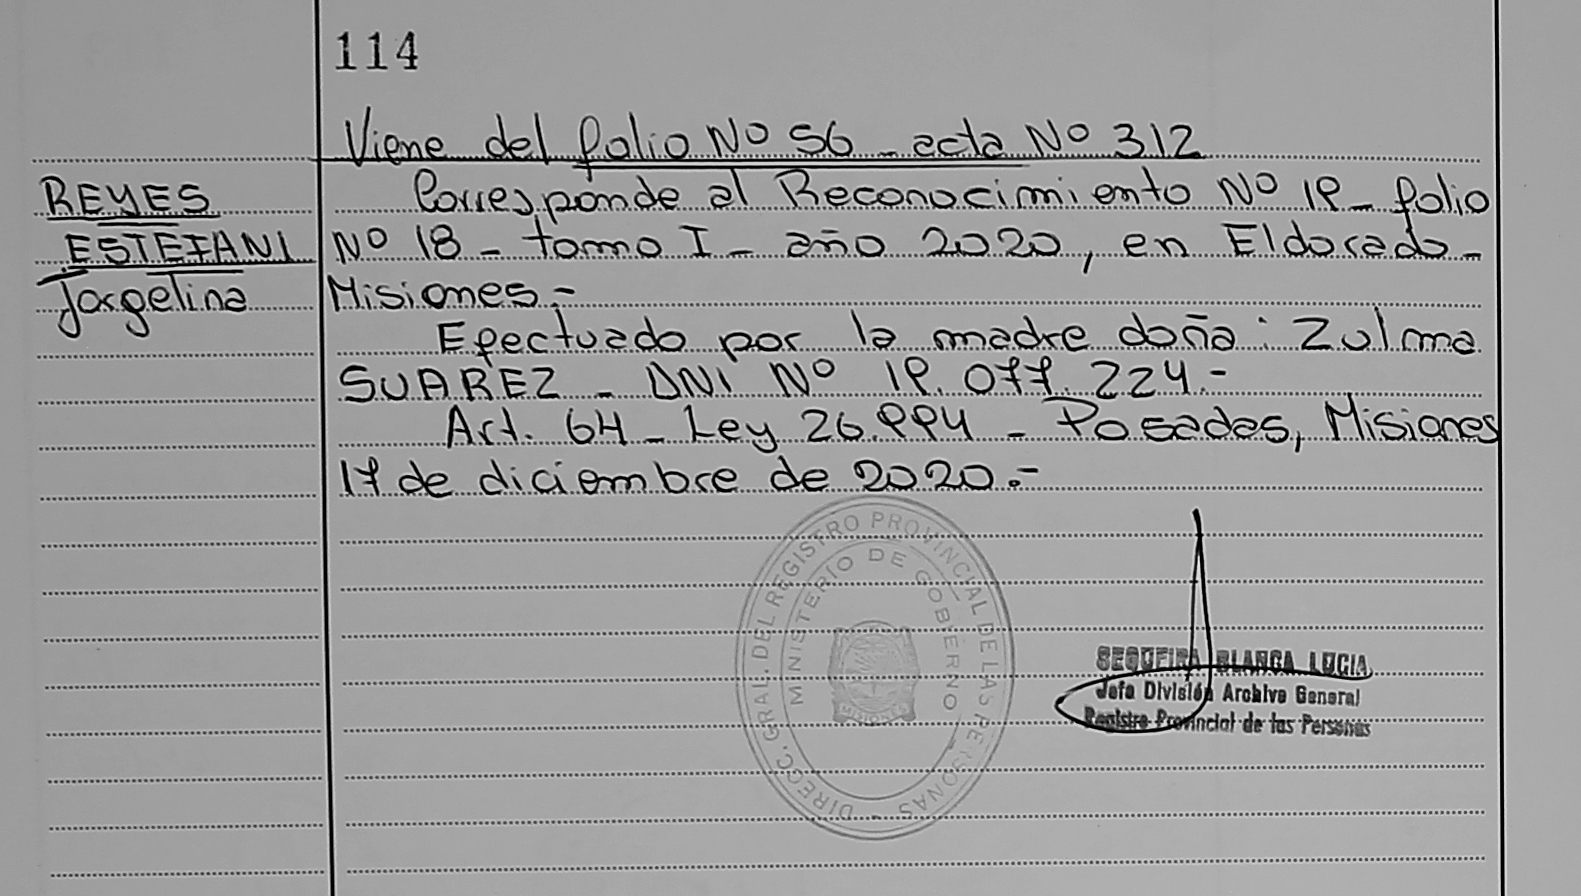 114
Viene del folio Nº 56 - acta Nº 312
REYES
ESTEFANI
Jorgelina
Corresponde al Reconocimiento Nº 19 - folio
Nº 18 - tomo I - año 2020, en Eldorado -
Misiones.-
Efectuado por la madre doña: Zulma
SUAREZ - DNI Nº 19.077.224.-
Art. 64 - Ley 26.994 - Posadas, Misiones
17 de diciembre de 2020.-
DIRECC. GRAL. DEL REGISTRO PROVINCIAL DE LAS PERSONAS -
MINISTERIO DE GOBIERNO -
MISIONES
SEQUEIRA BLANCA LUCIA
Jefa División Archivo General
Registro Provincial de las Personas